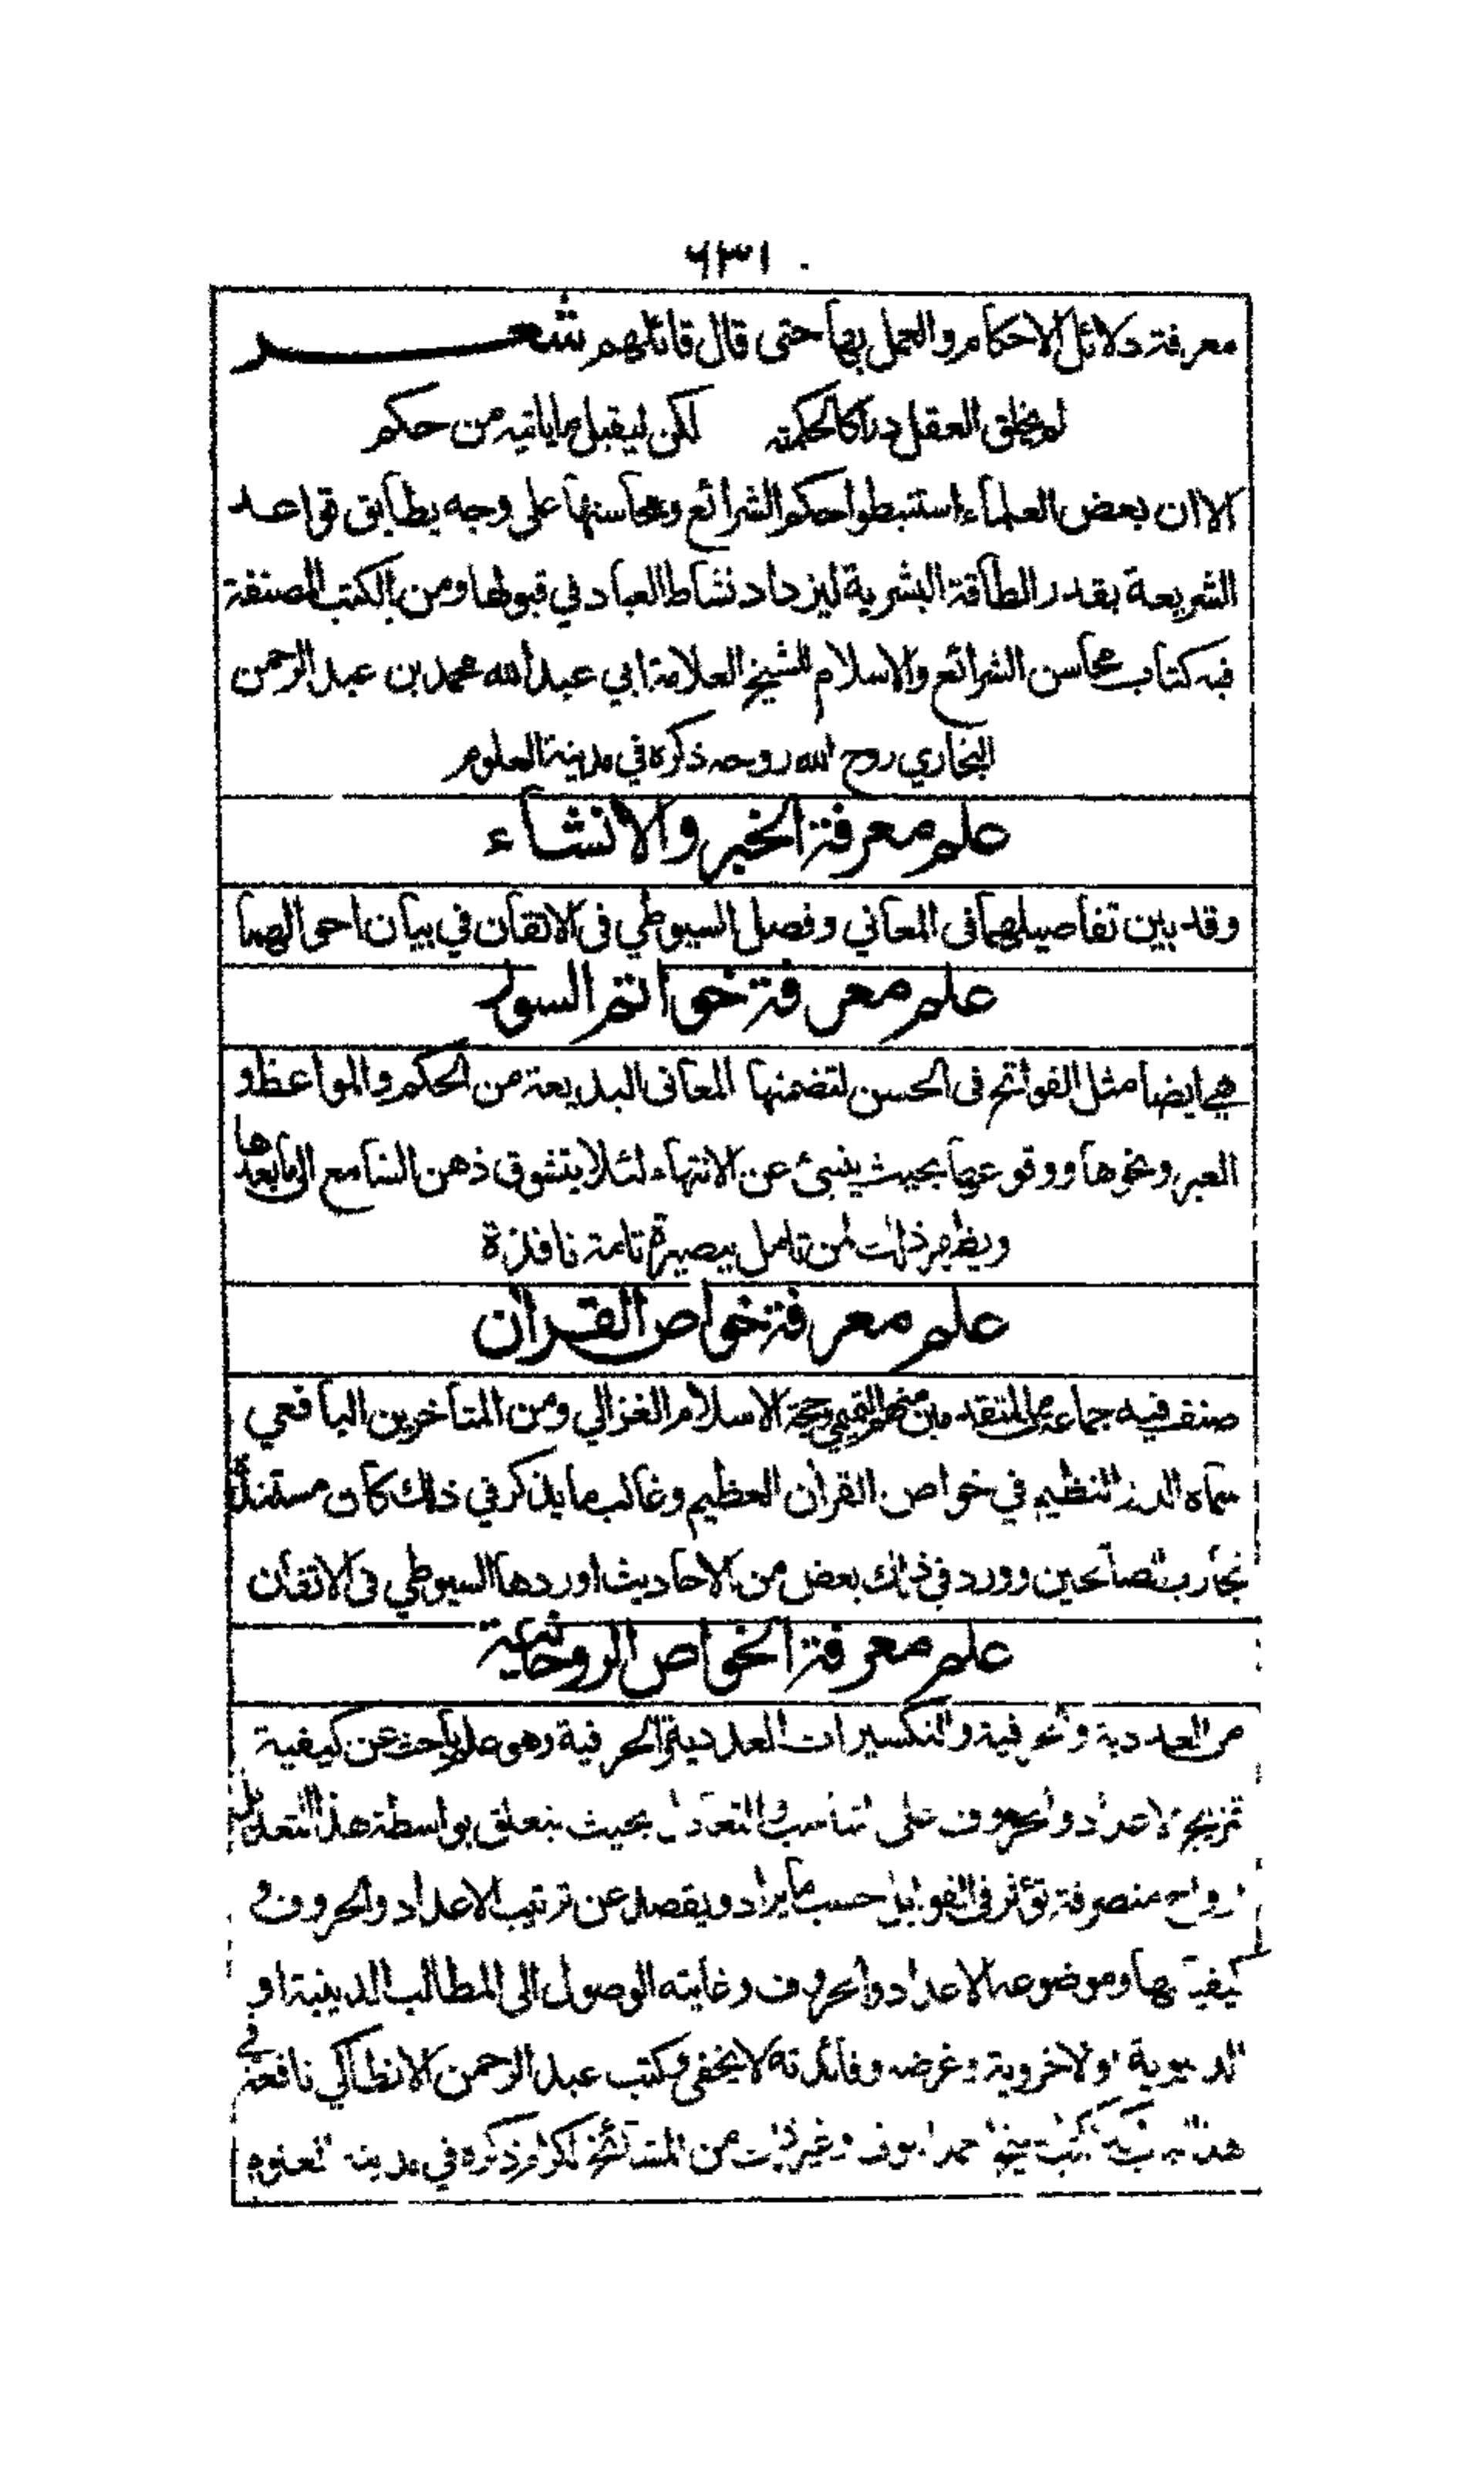 ٦٣١
معرفة دلائل الاحكام والعمل بها حتى قال قائلهم شعر
لم يخلق العقل دراكا لحكمته لكن ليقبل ما ياتيه من حكم
الا ان بعض العلماء استنبطوا حكم الشرائع ومحاسنها على وجه يطابق قواعد
الشريعة بقدر الطاقة البشرية ليزداد نشاط العباد في قبولها ومن الكتب المصنفة
فيه كتاب محاسن الشرائع والاسلام للشيخ العلامة ابي عبد الله محمد بن عبد الرحمن
البخاري روح الله روحه ذكره في مدينة العلوم
علم معرفة الخبر والانشاء
وقد بين تفاصيلهما في المعاني وفصل السيوطي في الاتقان في بيان احوالهما
علم معرفة خواتم السور
هي ايضا مثل الفواتح في الحسن لتضمنها المعاني البديعة من الحكم والمواعظ و
العبر ونحوها ووقوعها بحيث ينبئ عن الانتهاء لئلا يتشوق ذهن السامع الى ما بعدها
ويظهر ذلك لمن تامل ببصيرة تامة نافذة
علم معرفة خواص القران
صنف فيه جماعة من المتقدمين منهم التميمي وحجة الاسلام الغزالي ومن المتاخرين اليافعي
سماه الدر النظيم في خواص القران العظيم وغالب ما يذكر في ذلك كان مستنده
تجارب الصالحين وورد في ذلك بعض من الاحاديث اوردها السيوطي في الاتقان
علم معرفة الخواص الروحانية
من العددية والحرفية والتكسيرات العددية والحرفية وهو علم باحث عن كيفية
تمزيج الاعداد والحروف على التناسب والتعادل بحيث يتعلق بواسطة هذا التعديل
ارواح متصرفة تؤثر في القوابل حسب ما يراد ويقصد عن ترتيب الاعداد والحروف و
كيفيتها وموضوعه الاعداد والحروف وغايته الوصول الى المطالب الدينية او
الدنيوية والاخروية وغرضه وفائدته لا يخفى وكتب عبد الرحمن الانطاكي نافعة في
هذا الباب كتب الشيخ احمد البوني وغير ذلك من المشائخ الكرام ذكره في مدينة العلوم